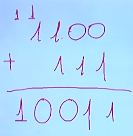 1 1
1100
+ 111
10011